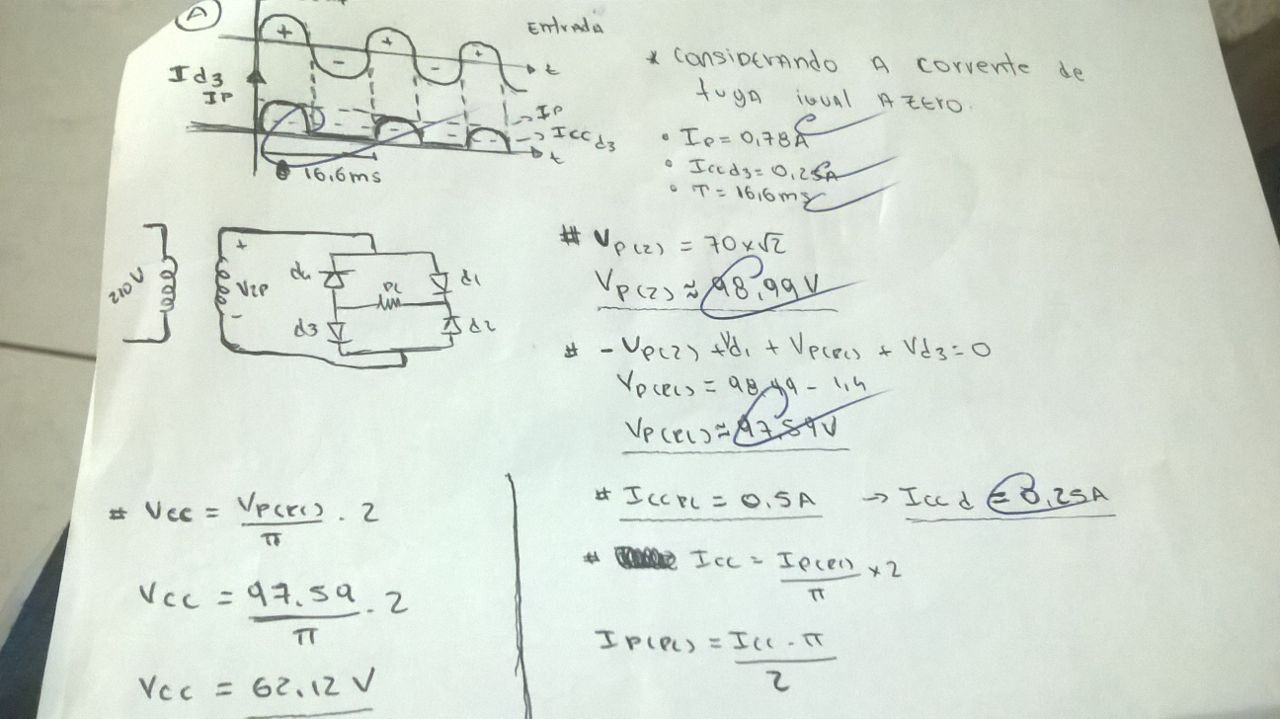 A
+
-
+
-
+
Entrada
t
Id3
IP
IP
Iccd3
t
16,6ms
* CONSIDERANDO A corrente de
fuga igual A zero.
• Ip = 0,78A
• Iccd3 = 0,25A
• T = 16,6ms
210V
+
V2P
-
d4
d1
RL
d3
d2
# Vp(2) = 70x√2
Vp(2) ≈ 98,99V
# - Vp(2) + Vd1 + Vp(RL) + Vd3 = 0
Vp(RL) = 98,99 - 1,4
Vp(RL) ≈ 97,59V
# Vcc = Vp(RL) / π . 2
Vcc = 97,59 / π . 2
Vcc = 62,12 V
# IccRL = 0,5A → Iccd = 0,25A
# Icc = Ip(RL) / π x2
Ip(RL) = Icc . π / 2